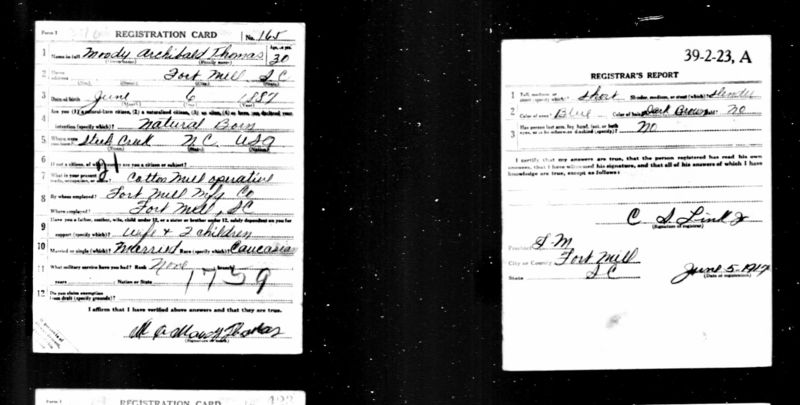 Form 1
REGISTRATION CARD No. 165
1 Name in full Moody Archibald Thomas Age, in yrs. 30
(Given name) (Family name)
2 Home address Fort Mill S C
3 Date of birth June 6 1887
(Month) (Day) (Year)
4 Are you (1) a natural-born citizen, (2) a naturalized citizen, (3) an alien, (4) or have you declared your intention (specify which)? Natural Born
5 Where were you born? Creek N.C. USA
(Town) (State) (Nation)
6 If not a citizen, of what country are you a citizen or subject?
7 What is your present trade, occupation, or office? Cotton Mill operative
8 By whom employed? Fort Mill Mfg Co
Where employed? Fort Mill, SC
9 Have you a father, mother, wife, child under 12, or a sister or brother under 12, solely dependent on you for support (specify which)? Wife + 2 children
10 Married or single (which)? Married Race (specify which)? Caucasian
11 What military service have you had? Rank None branch
years Nation or State
1739
12 Do you claim exemption from draft (specify grounds)?
I affirm that I have verified above answers and that they are true.
Moody Thomas
(Signature or mark)
Form 1 REGISTRATION CARD
39-2-23, A
REGISTRAR'S REPORT
1 Tall, medium, or short (specify which)? Short Slender, medium, or stout (which)? Slender
2 Color of eyes? Blue Color of hair? Dark Brown Bald? No
3 Has person lost arm, leg, hand, foot, or both eyes, or is he otherwise disabled (specify)? No
I certify that my answers are true, that the person registered has read his own answers, that I have witnessed his signature, and that all of his answers of which I have knowledge are true, except as follows:
C S Link Jr
(Signature of registrar)
Precinct F M
City or County Fort Mill
State S C
June 5-1917
(Date of registration)